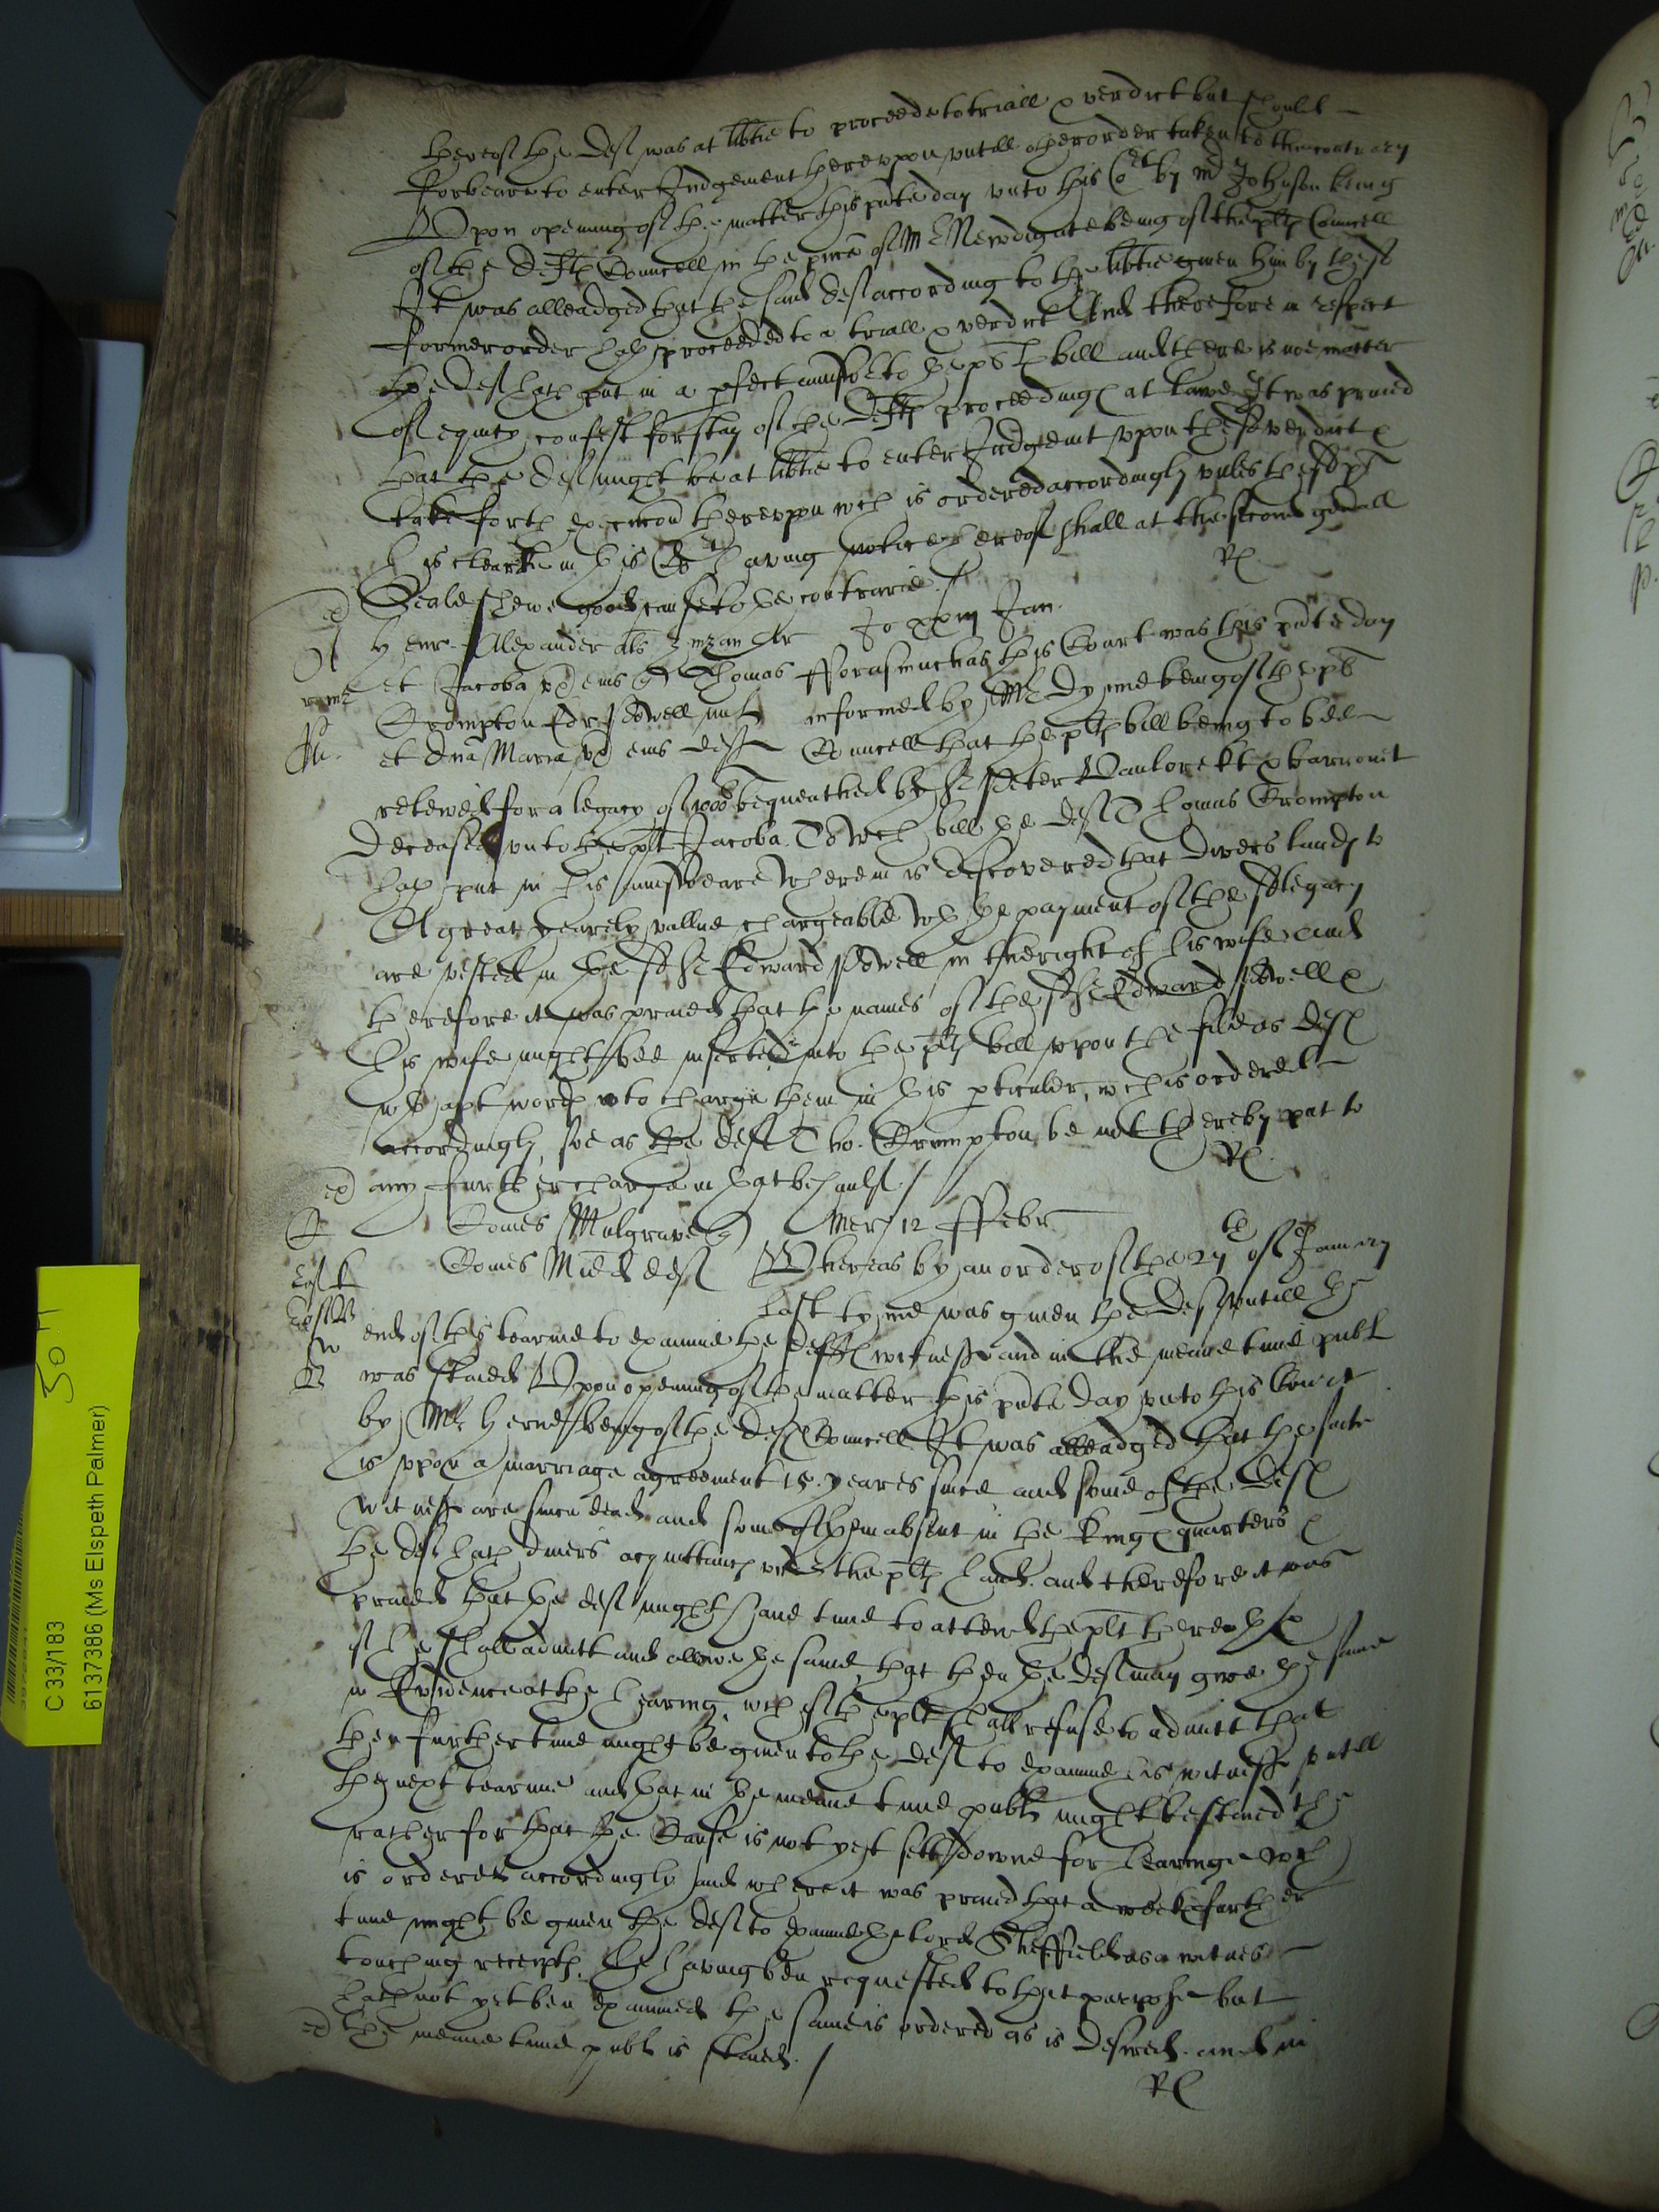 thereof the deft was at libtie to proceede to triall & verdict but should
forbeare to enter Judgement thereupon untill other order taken to the contrary
Upon opening of the matter this pnte day unto this Cort by mr Johnson being
of the defts Councell in the pnce of Mr Newdigate being of the plts Councell
It was alleadged that the said deft according to the libtie given him by these
former order hath proceeded to a triall & verdict And therefore in respect
the deft hath put in a pfect answere to the pts bill and there is noe matter
of equity confest for stay of the defts proceedings at lawe It was praied
that the deft might be at libtie to enter Judgemt upon the sd verdict &
take forth execucon thereupon wch is ordered accordingly unles the sd plt
his clearke in this Cort having notice hereof shall at the second genrall
Seale shewe good cause to the contrarie /
Rl
Henr Alexander als Zinzan Ar
Jo xxiii Jan.
et Jacoba ux eius qr Thomas
Forasmuch as this Court was this pnte day
Crompton Edr Powell mil
informed by Mr Dymme being of the pts
et Dna Maria ux eius defts
Councell that the plts bill being to bee
releived for a legacy of 1000li bequeathed by Sr Peter Vanlore kt & barronet
deceased unto the plt Jacoba. To wch bill the deft Thomas Crompton
hath put in his answeare wherein is discovered that divers lands to
A great yearely vallue chargeable wth the payment of the sd legacy
are vested in the sd Sr Edward Powell in the right of his wife and
therefore it was praied that the names of the sd Sr Edward Powell &
his wife might bee inserted into the plts bill upon the file as defts
wth apt words to charge them in this pticuler, wch is ordered
accordingly, soe as the deft Tho. Crompton be not thereby put to
any further charge in that behalf /
Rl
Comes Mulgrave qr
Mer 12 Febr
Comes Midd deft
Whereas by an order of the 27th of January
last tyme was given the deft untill the
end of this tearme to examine the defts witnesses and in the meane time publ
was staied Upon opening of the matter this pnte day unto this Court
by Mr Herne being of the defts Councell It was alleadged that the suite
is upon a marriage agreement 15 yeares since and some of the defts
witnesses are since dead and some of them absent in the Kings quarters &
the deft hath divers acquittances under the plts hand. and therefore it was
praied that the deft might have time to attend the plt therewth &
if he shall admitt and allowe the same, that then the deft may give the same
in Evidence at the hearing, wch if the plt shall refuse to admitt that
then further time might be given to the deft to examine his witnesses untill
the next tearme and that in the meane time publ might be staied the
rather for that the Cause is not yet sett downe for hearinge wch
is ordered accordingly and where it was praied that a weekes further
time might be given the deft to examine the lord Sheffield as a witnes
touching receipts, he having ben requested to that purpose but
hath not yet ben examined the same is ordered as is desired. and in
the meane time publ is staied. /
Rl
50 H
C 33/183
6137386 (Ms Elspeth Palmer)